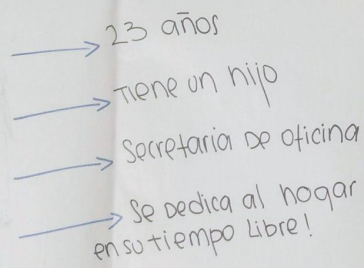 23 años
Tiene un hijo
Secretaria De oficina
Se Dedica al hogar
en su tiempo Libre!